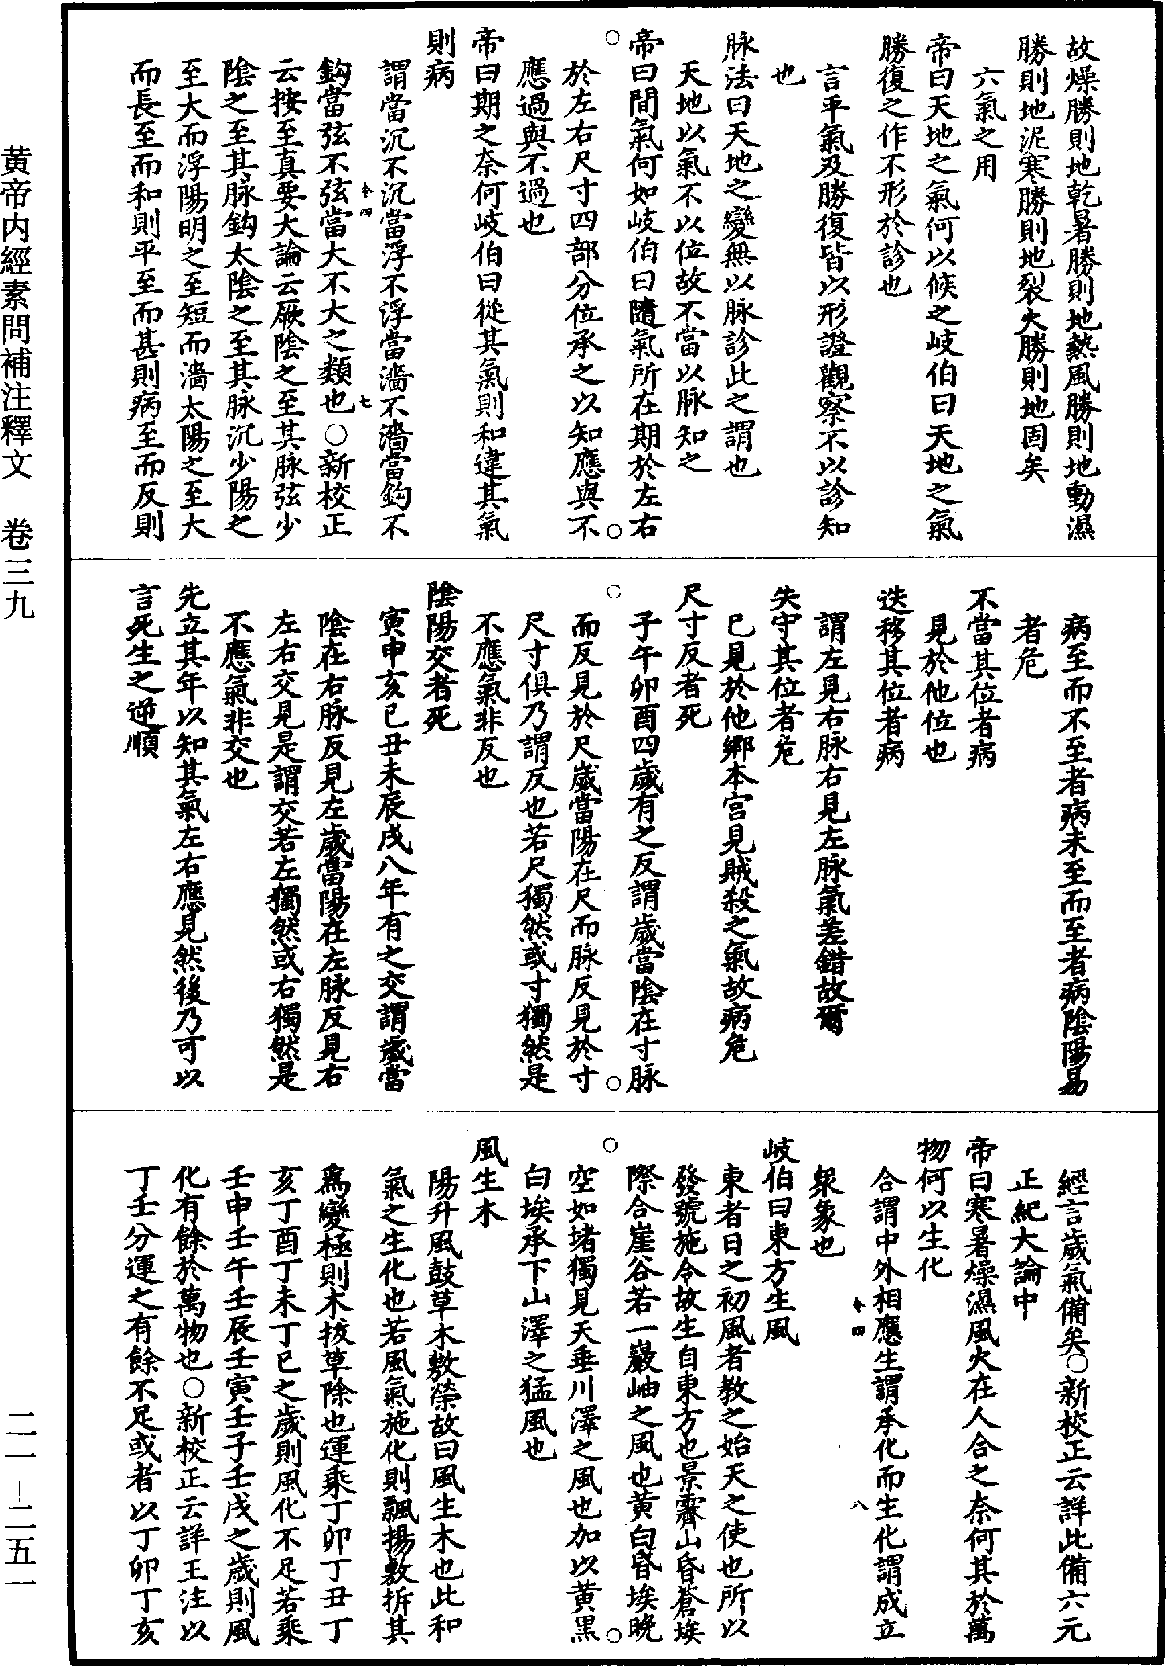 故燥勝則地乾暑勝則地熱風勝則地動濕
勝則地泥寒勝則地裂火勝則地固矣
六氣之用
帝曰天地之氣何以候之岐伯曰天地之氣
勝復之作不形於診也
言平氣及勝復皆以形證觀察不以診知
也
脉法曰天地之變無以脉診此之謂也
天地以氣不以位故不當以脉知之
帝曰間氣何如岐伯曰隨氣所在期於左右
於左右尺寸四部分位承之以知應與不
應過與不過也
帝曰期之奈何岐伯曰從其氣則和違其氣
則病
謂當沉不沉當浮不浮當濇不濇當鈎不
鈎當弦不弦當大不大之類也○新校正
云按至真要大論云厥陰之至其脉弦少
陰之至其脉鈎太陰之至其脉沉少陽之
至大而浮陽明之至短而濇太陽之至大
而長至而和則平至而甚則病至而反則
病至而不至者病未至而至者病陰陽易
者危
不當其位者病
見於他位也
迭移其位者病
謂左見右脉右見左脉氣差錯故爾
失守其位者危
已見於他鄉本宮見賊殺之氣故病危
尺寸反者死
子午卯酉四歲有之反謂歲當陰在寸脉
而反見於尺歲當陽在尺而脉反見於寸
尺寸俱乃謂反也若尺獨然或寸獨然是
不應氣非反也
陰陽交者死
寅申亥巳丑未辰戌八年有之交謂歲當
陰在右脉反見左歲當陽在左脉反見右
左右交見是謂交若左獨然或右獨然是
不應氣非交也
先立其年以知其氣左右應見然後乃可以
言死生之逆順
經言歲氣備矣○新校正云詳此備六元
正紀大論中
帝曰寒暑燥濕風火在人合之奈何其於萬
物何以生化
合謂中外相應生謂承化而生化謂成立
衆象也
岐伯曰東方生風
東者日之初風者教之始天之使也所以
發號施令故生自東方也景霽山昏蒼埃
際合崖谷若一巖岫之風也黃白昏埃晚
空如堵獨見天垂川澤之風也加以黃黑
白埃承下山澤之猛風也
風生木
陽升風鼓草木敷榮故曰風生木也此和
氣之生化也若風氣施化則飄揚敷拆其
爲變極則木拔草除也運乘丁卯丁丑丁
亥丁酉丁未丁巳之歲則風化不足若乘
壬申壬午壬辰壬寅壬子壬戌之歲則風
化有餘於萬物也○新校正云詳王注以
丁壬分運之有餘不足或者以丁卯丁亥
黄帝内經素問補注釋文 卷三九
二一—二五一
叁四 七
叁四 八